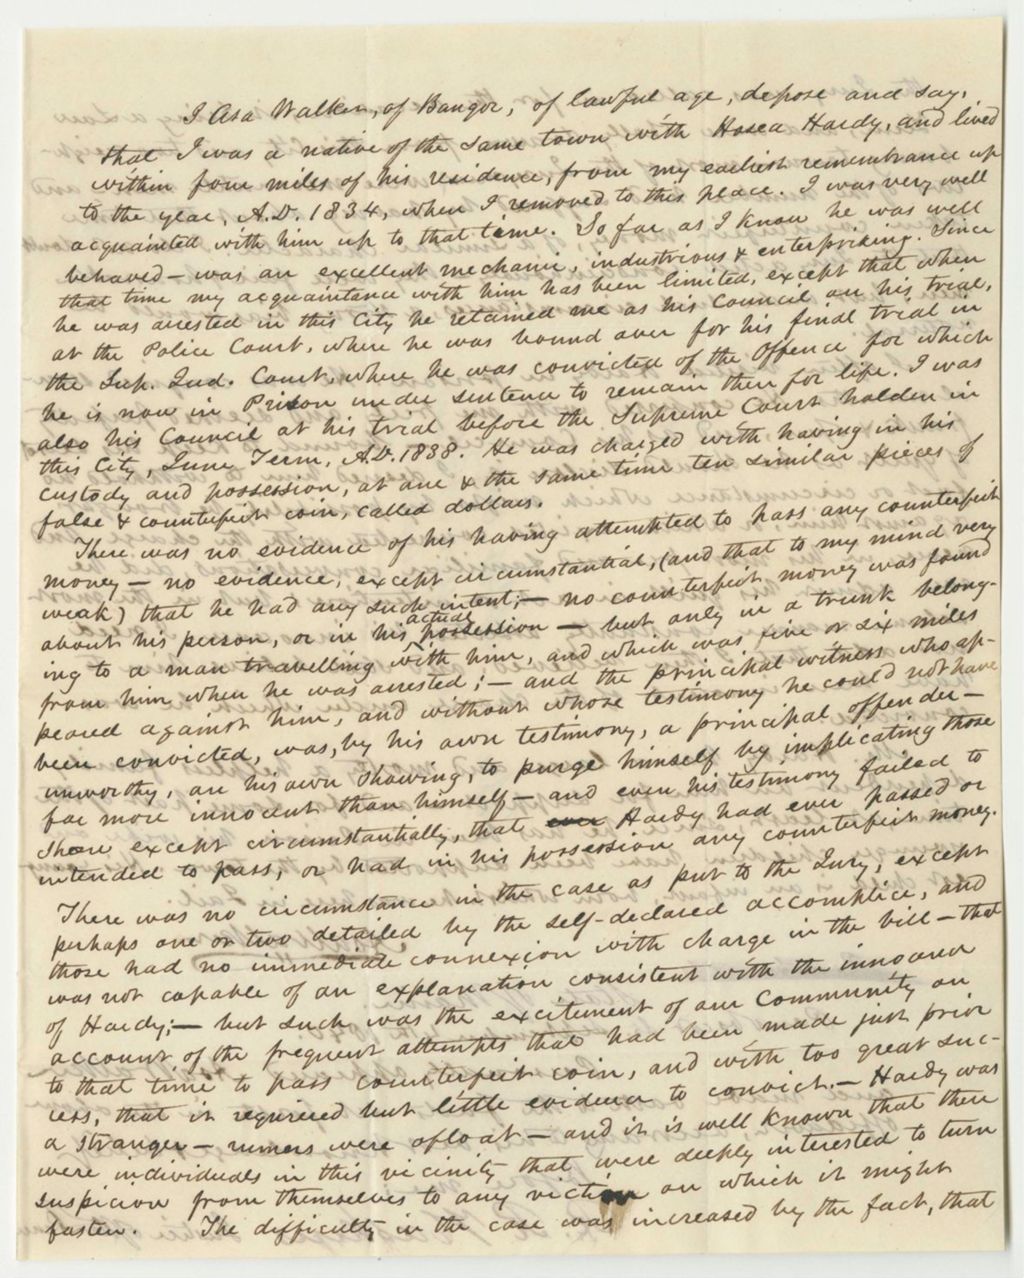 I Asa Walker, of Bangor, of lawful age, depose and say,
that I was a native of the same town with Hosea Hardy, and lived
within four miles of his residence, from my earliest remembrance up
to the year, A.D. 1834, when I removed to this place. I was very well
acquainted with him up to that time. So far as I know he was well
behaved – was an excellent mechanic, industrious & enterprising. Since
that time my acquaintance with him has been limited, except that when
he was arrested in this City he retained me as his Council on his trial,
at the Police Court, where he was bound over for his final trial in
the Sup. Jud. Court, where he was convicted of the Offence for which
he is now in Prison under sentence to remain then for life. I was
also his Council at his trial before the Supreme Court holden in
this City, June Term, A.D. 1838. He was charged with having in his
custody and possession, at one & the same time ten similar pieces of
false & counterfeit coin, called dollars.
There was no evidence of his having attempted to pass any counterfeit
money – no evidence, except circumstantial, (and that to my mind very
weak) that he had any such intent; – no counterfeit money was found
about his person, or in his actual possession – but only in a trunk belong-
ing to a man travelling with him, and which was five or six miles
from him when he was arrested; – and the principal witness who ap-
peared against him, and without whose testimony he could not have
been convicted, was, by his own testimony, a principal offender –
unworthy, on his own showing, to purge himself by implicating those
far more innocent than himself – and even his testimony failed to
show except circumstantially, that ever Hardy had ever passed or
intended to pass, or had in his possession any counterfeit money.
There was no circumstance in the case as put to the Jury, except
perhaps one or two detailed by the self-declared accomplice, and
those had no immediate connexion with charge in the bill – that
was not capable of an explanation consistent with the innocence
of Hardy; – but such was the excitement of our Community on
account of the frequent attempts that had been made just prior
to that time to pass counterfeit coin, and with too great suc-
cess, that it required but little evidence to convict. – Hardy was
a stranger – rumors were afloat – and it is well known that there
were individuals in this vicinity that were deeply interested to turn
suspicion from themselves to any victim on which it might
fasten. The difficulty in the case was increased by the fact, that